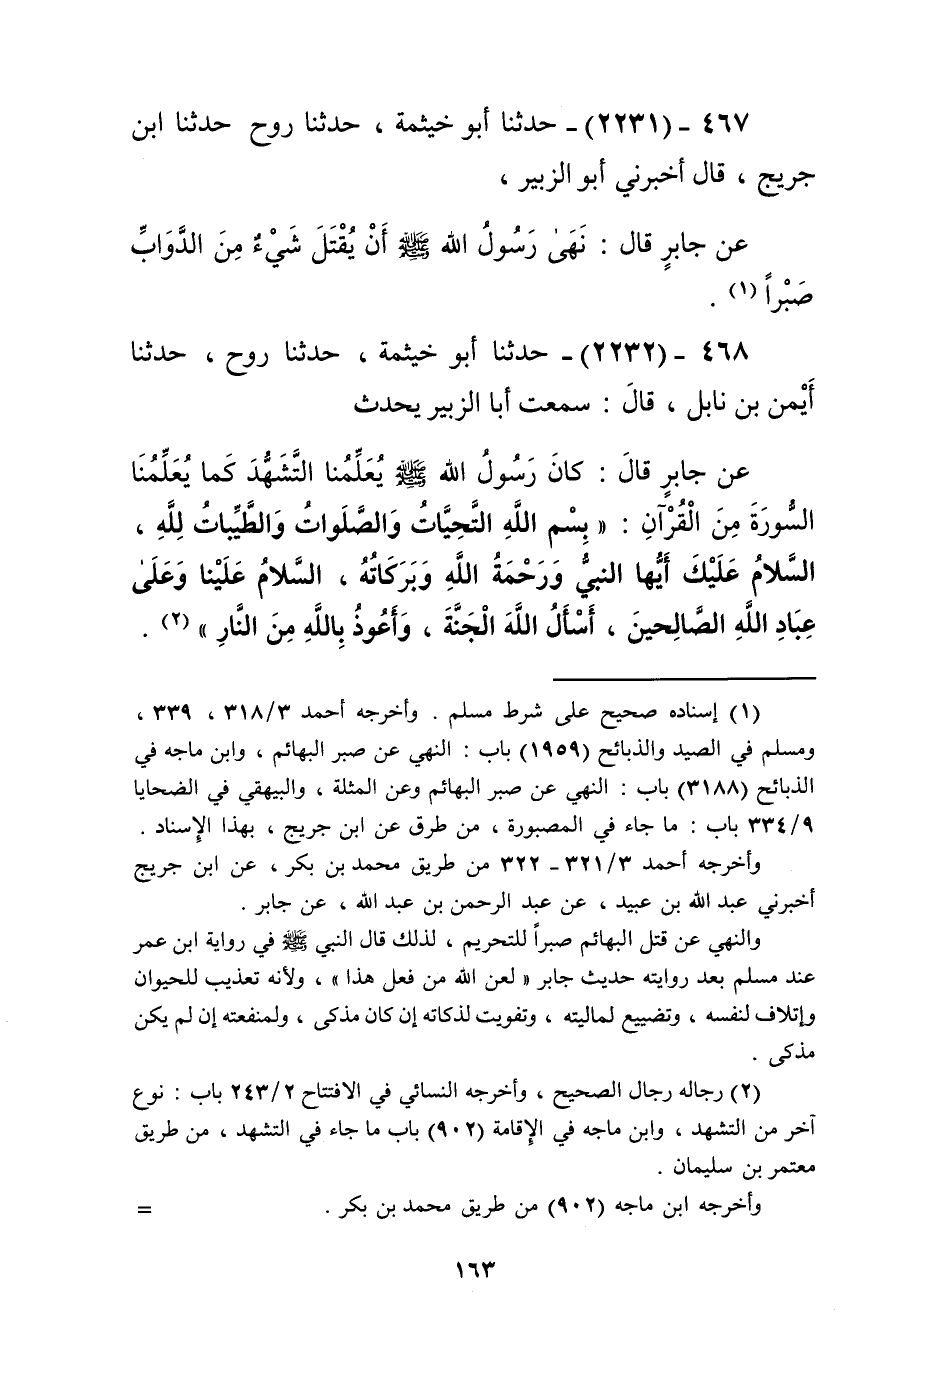 ٤٦٧ ـ (٢٢٣١) ـ حدثنا أبو خيثمة ، حدثنا روح حدثنا ابن
جريج ، قال أخبرني أبو الزبير ،
عن جابرٍ قال : نَهَىٰ رَسُولُ الله ﷺ أَنْ يُقْتَلَ شَيْءٌ مِنَ الدَّوَابِّ
صَبْراً (١) .
٤٦٨ ـ (٢٢٣٢) ـ حدثنا أبو خيثمة ، حدثنا روح ، حدثنا
أَيْمن بن نابل ، قالَ : سمعت أبا الزبير يحدث
عن جابرٍ قالَ : كانَ رَسُولُ الله ﷺ يُعَلِّمُنا التَّشَهُّدَ كَما يُعَلِّمُنَا
السُّورَةَ مِنَ الْقُرْآنِ : « بِسْم اللَّهِ التَّحِيَّاتُ وَالصَّلَواتُ وَالطَّيِّباتُ لِلَّهِ ،
السَّلامُ عَلَيْكَ أَيُّها النبيُّ وَرَحْمَةُ اللَّهِ وَبَرَكَاتُهُ ، السَّلامُ عَلَيْنا وَعَلَىٰ
عِبَادِ اللَّهِ الصَّالِحينَ ، أَسْأَلُ اللَّهَ الْجَنَّةَ ، وَأَعُوذُ بِاللَّهِ مِنَ النَّارِ » (٢) .
(١) إسناده صحيح على شرط مسلم . وأخرجه أحمد ٣١٨/٣ ، ٣٣٩ ،
ومسلم في الصيد والذبائح (١٩٥٩) باب : النهي عن صبر البهائم ، وابن ماجه في
الذبائح (٣١٨٨) باب : النهي عن صبر البهائم وعن المثلة ، والبيهقي في الضحايا
٣٣٤/٩ باب : ما جاء في المصبورة ، من طرق عن ابن جريج ، بهذا الإسناد .
وأخرجه أحمد ٣٢١/٣ ـ ٣٢٢ من طريق محمد بن بكر ، عن ابن جريج
أخبرني عبد الله بن عبيد ، عن عبد الرحمن بن عبد الله ، عن جابر .
والنهي عن قتل البهائم صبراً للتحريم ، لذلك قال النبي ﷺ في رواية ابن عمر
عند مسلم بعد روايته حديث جابر « لعن الله من فعل هذا » ، ولأنه تعذيب للحيوان
وإتلاف لنفسه ، وتضييع لماليته ، وتفويت لذكاته إن كان مذكى ، ولمنفعته إن لم يكن
مذكى .
(٢) رجاله رجال الصحيح ، وأخرجه النسائي في الافتتاح ٢٤٣/٢ باب : نوع
آخر من التشهد ، وابن ماجه في الإقامة (٩٠٢) باب ما جاء في التشهد ، من طريق
معتمر بن سليمان .
وأخرجه ابن ماجه (٩٠٢) من طريق محمد بن بكر . =
١٦٣